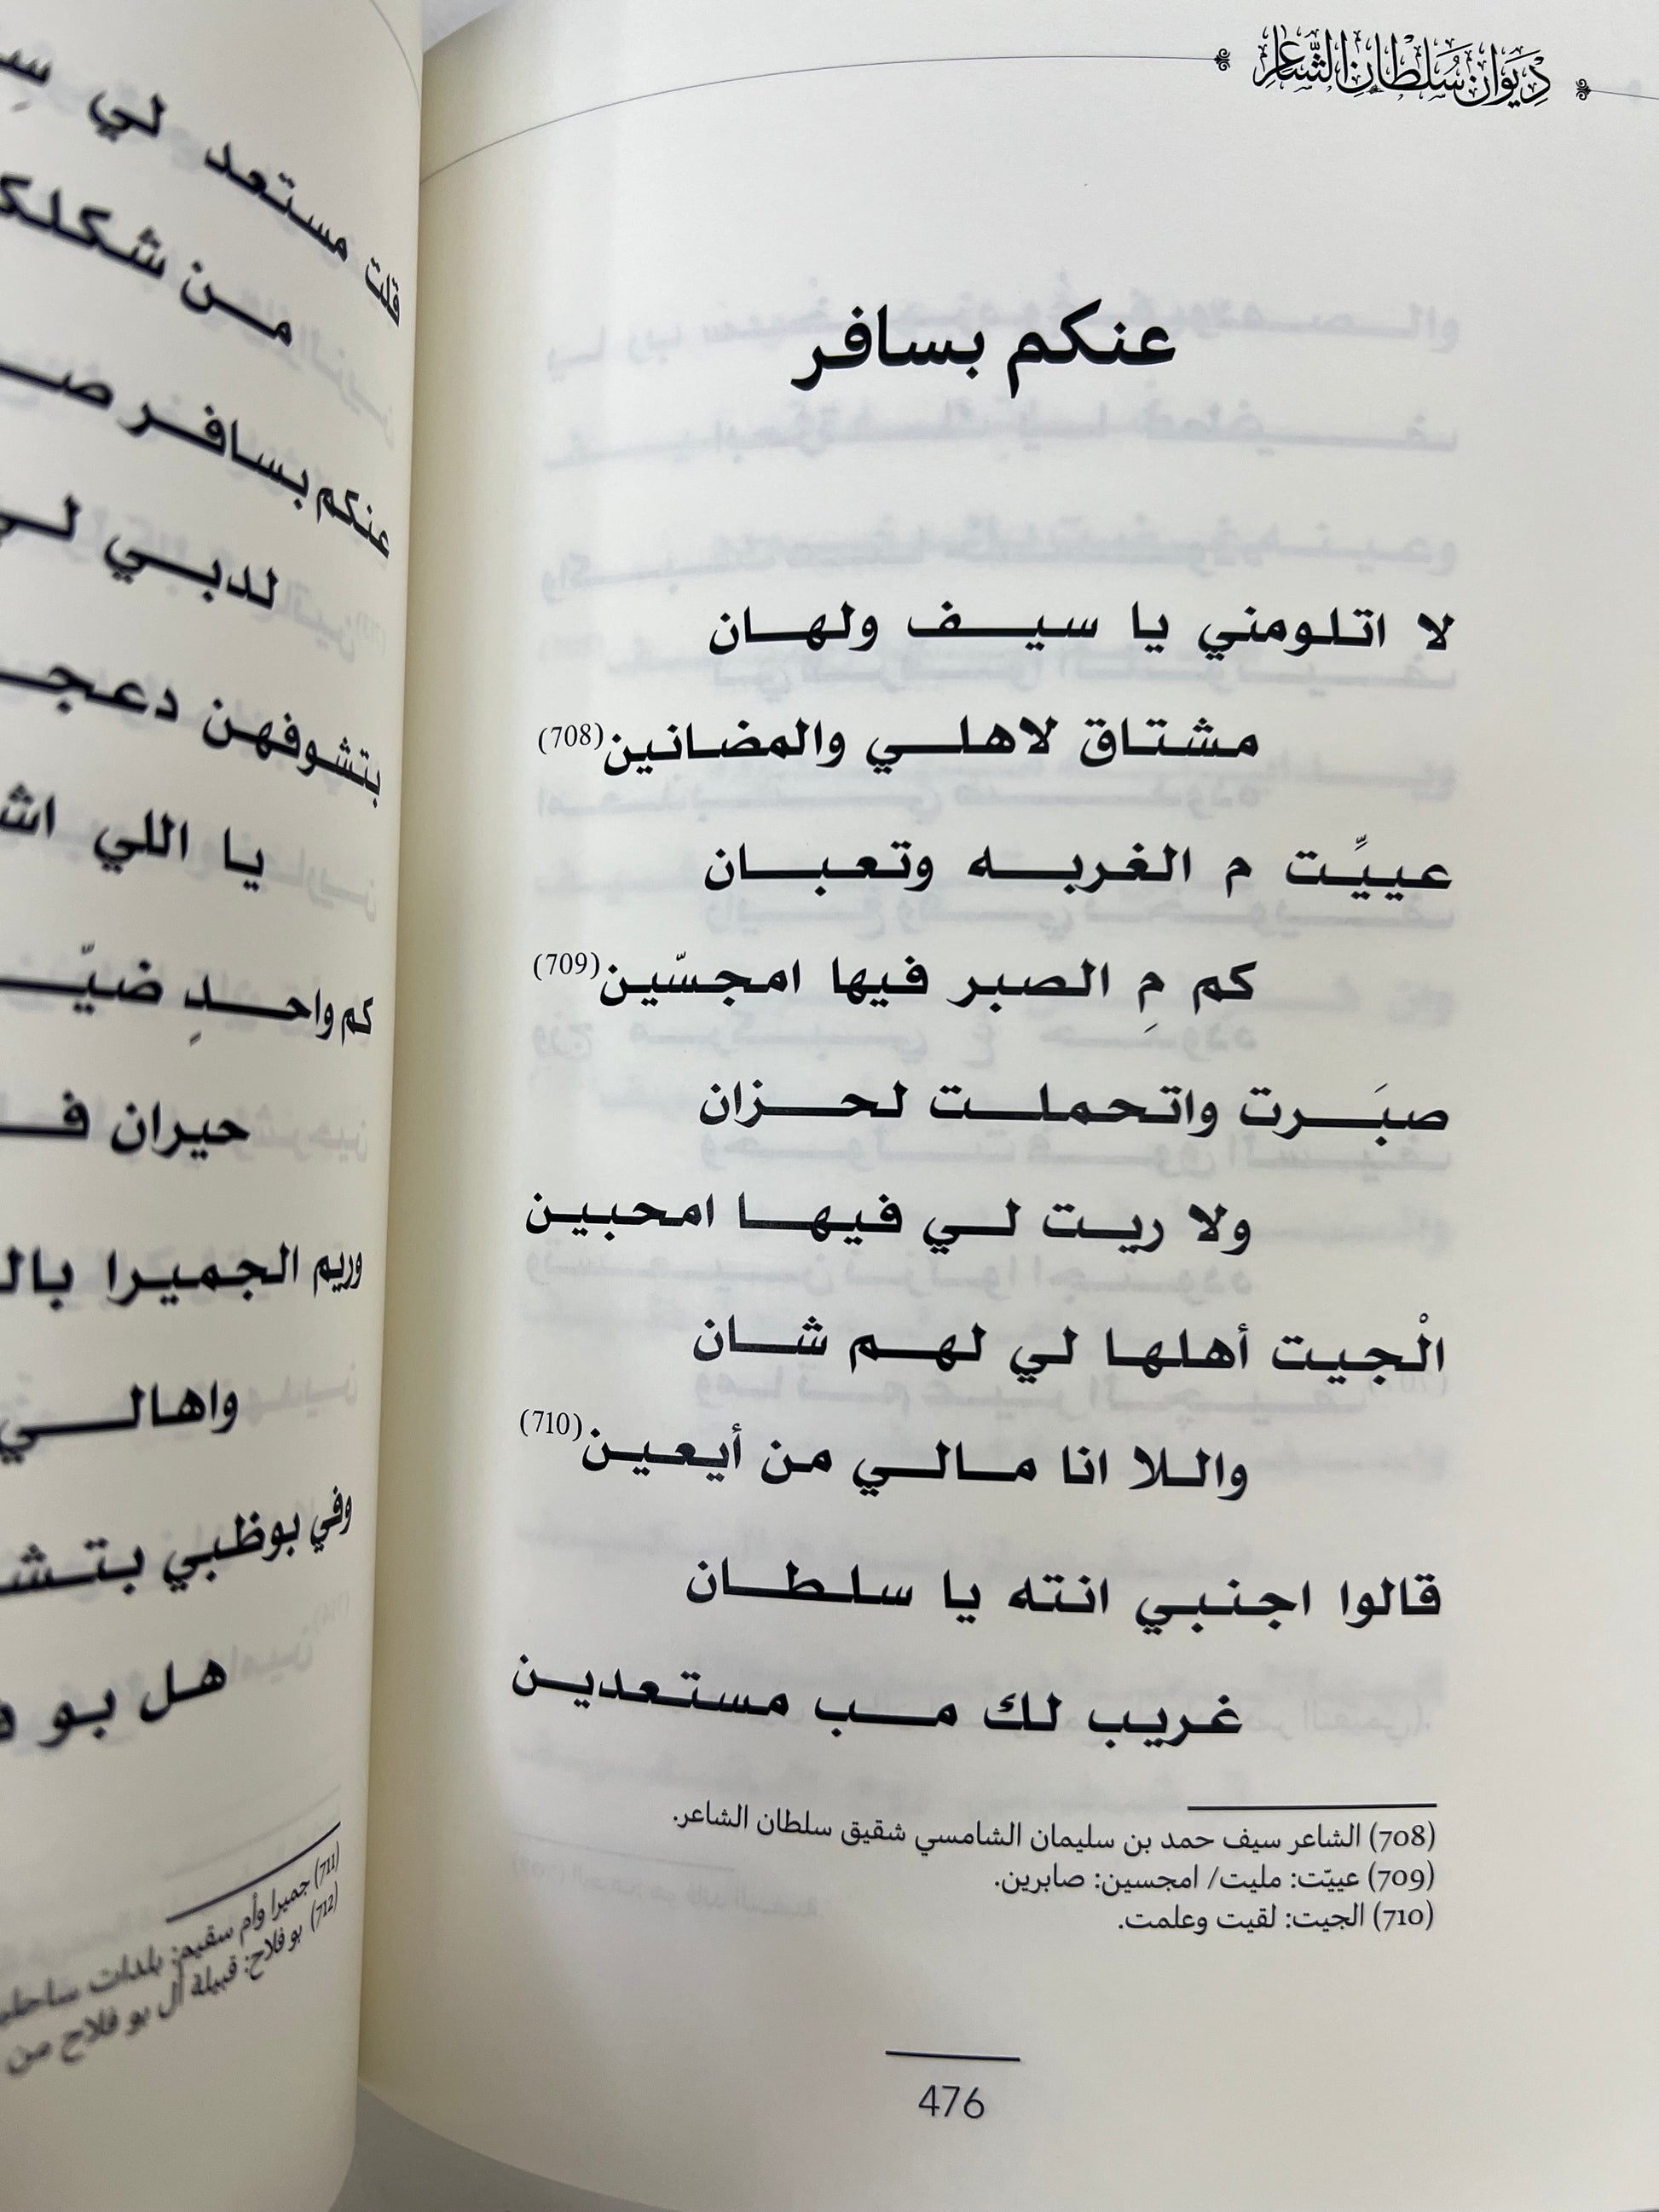 ديوان سلطان الشاعر
عنكم بسافر
لا اتلومني يا سيف ولهان
مشتاق لاهلي والمضانين(708)
عييِّت م الغربه وتعبان
كم مِ الصبر فيها امجسّين(709)
صبَرت واتحملت لحزان
ولا ريت لي فيها امحبين
الْجيت أهلها لي لهم شان
واللا انا مالي من أيعين(710)
قالوا اجنبي انته يا سلطان
غريب لك مب مستعدين
(708) الشاعر سيف حمد بن سليمان الشامسي شقيق سلطان الشاعر.
(709) عييّت: مليت/ امجسين: صابرين.
(710) الجيت: لقيت وعلمت.
476
قلت مستعد لي
من
عنكم بسافر
لدبي
بتشوفهن
يا اللي
كم واحدٍ
حيران
وريم الجميرا
واهالي
وفي بوظبي
هل بو
(711) جميرا وأم سقيم: بلدات
(712) بو فلاح: قبيلة آل بو فلاح من